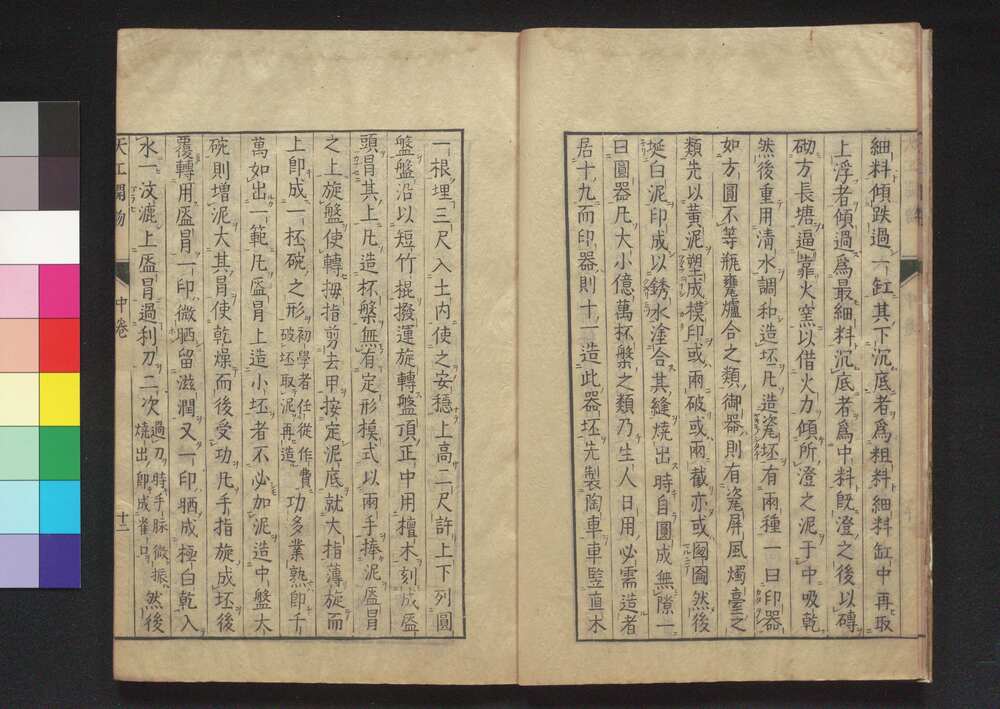 細料傾跌過一缸其下沉底者爲粗料細料缸中再取
上浮者傾過爲最細料沉底者爲中料旣澄之後以磚
砌方長塘逼靠火窯以借火力傾所澄之泥于中吸乾
然後重用淸水調和造坯凡造瓷坯有兩種一曰印器
如方圓不等瓶甕爐合之類御器則有瓷屏風燭臺之
類先以黃泥塑成模印或兩破或兩截亦或囫圇然後
埏白泥印成以銹水塗合其縫燒出時自圓成無隙一
曰圓器凡大小億萬杯槃之類乃生人日用必需造者
居十九而印器則十一造此器坯先製陶車車竪直木
一根埋三尺入土內使之安穩上高二尺許上下列圓
盤盤沿以短竹棍撥運旋轉盤頂正中用檀木刻成盔
頭冒其上凡造杯槃無有定形模式以兩手捧泥盔冒
之上旋盤使轉拇指剪去甲按定泥底就大指薄旋而
上卽成一杯碗之形初學者任從作費破坯取泥再造功多業熟卽千
萬如出一範凡盔冒上造小坯者不必加泥造中盤大
碗則增泥大其冒使乾燥而後受功凡手指旋成坯後
覆轉用盔冒一印微晒留滋潤又一印晒成極白乾入
水一汶漉上盔冒過利刀二次過刀時手脉微振燒出卽成雀口然後
天工開物
中卷
十二